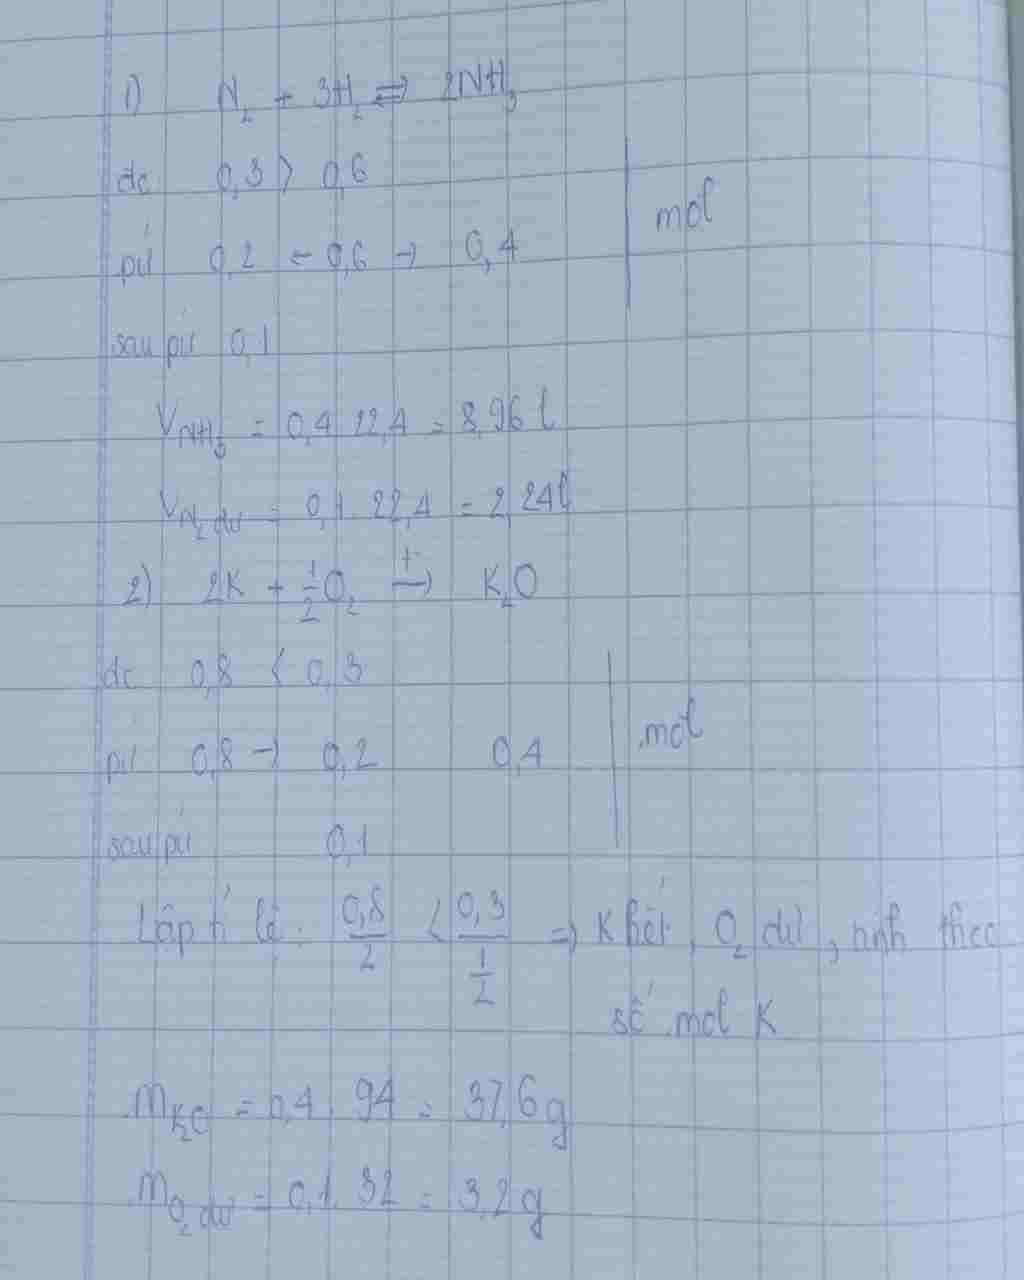 1) N₂ + 3H₂ ⇌ 2NH₃
dc 0,3 > 0,6
pứ 0,2 ← 0,6 → 0,4
mol
sau pứ 0,1
V_NH₃ = 0,4 22,4 = 8,96 l
V_N₂ dư = 0,1. 22,4 = 2,24l
2) 2K + 1/2 O₂ →(t°) K₂O
dc 0,8 < 0,3
pứ 0,8 → 0,2 0,4
mol
sau pứ 0,1
Lập tỉ lệ: 0,8/2 < 0,3/(1/2) => K hết, O₂ dư, tính theo
số mol K
m_K₂O = 0,4. 94 = 37,6g
m_O₂ dư = 0,1. 32 = 3,2g